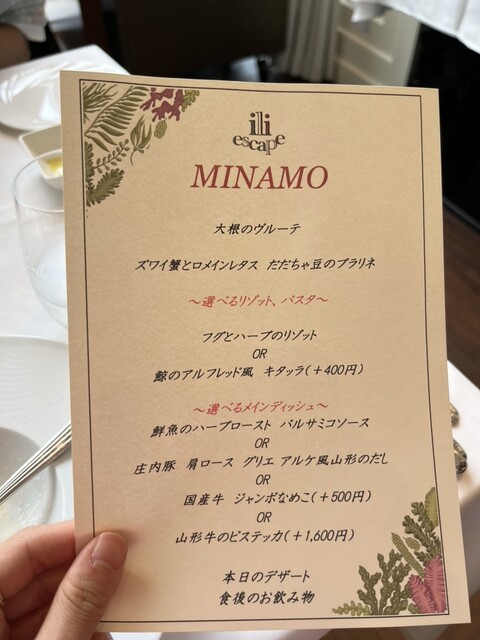 ili
escape
MINAMO
大根のヴルーテ
ズワイ蟹とロメインレタス だだちゃ豆のプラリネ
～選べるリゾット、パスタ～
フグとハーブのリゾット
OR
鯨のアルフレッド風 キタッラ(＋400円)
～選べるメインディッシュ～
鮮魚のハーブロースト バルサミコソース
OR
庄内豚 肩ロース グリエ アルケ風山形のだし
OR
国産牛 ジャンボなめこ(＋500円)
OR
山形牛のビステッカ(＋1,600円)
本日のデザート
食後のお飲み物